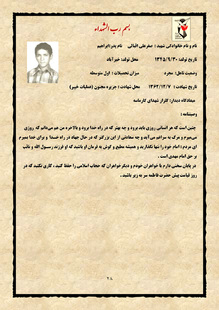 بسم رب الشهداء
نام و نام خانوادگی شهید : صفرعلی الیاتی نام پدر: ابراهیم
تاریخ تولد: ۱۳۴۵/۹/۳۰ محل تولد: خیر آباد
وضعیت تاهل: مجرد میزان تحصیلات : اول متوسطه
تاریخ شهادت : ۱۳۶۲/۱۲/۷ محل شهادت : جزیره مجنون (عملیات خیبر)
میعادگاه دیدار: گلزار شهدای کارماسه
وصیتنامه :
چنین است که هر انسانی روزی باید برود و چه بهتر که در راه خدا برود و بالاخره من هم می‌دانم که روزی
می‌میرم و مرگ به سراغم می‌آید و چه سعادتی از این بزرگتر که در حال جهاد در راه خدا و برای خدا بمیرم
ای مردم ! امام خود را تنها نگذارید و همیشه مطیع و گوش به فرمان او باشید که او فرزند رسول الله و نائب
بر حق امام مهدی است .
در پایان سخنی دارم با خواهران خودم و دیگر خواهران که حجاب اسلامی را حفظ کنید ، کاری نکنید که در
روز قیامت پیش حضرت فاطمه سر به زیر باشید .